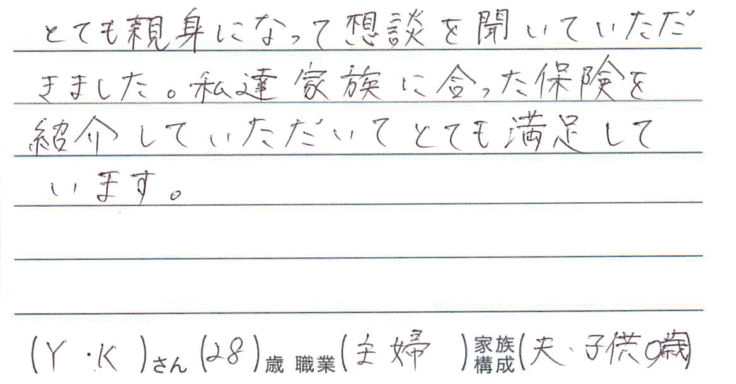 とても親身になって想談を聞いていただ
きました。私達家族に合った保険を
紹介していただいてとても満足して
います。
(Y・K)さん(28)歳 職業(主婦)家族構成(夫・子供0歳)